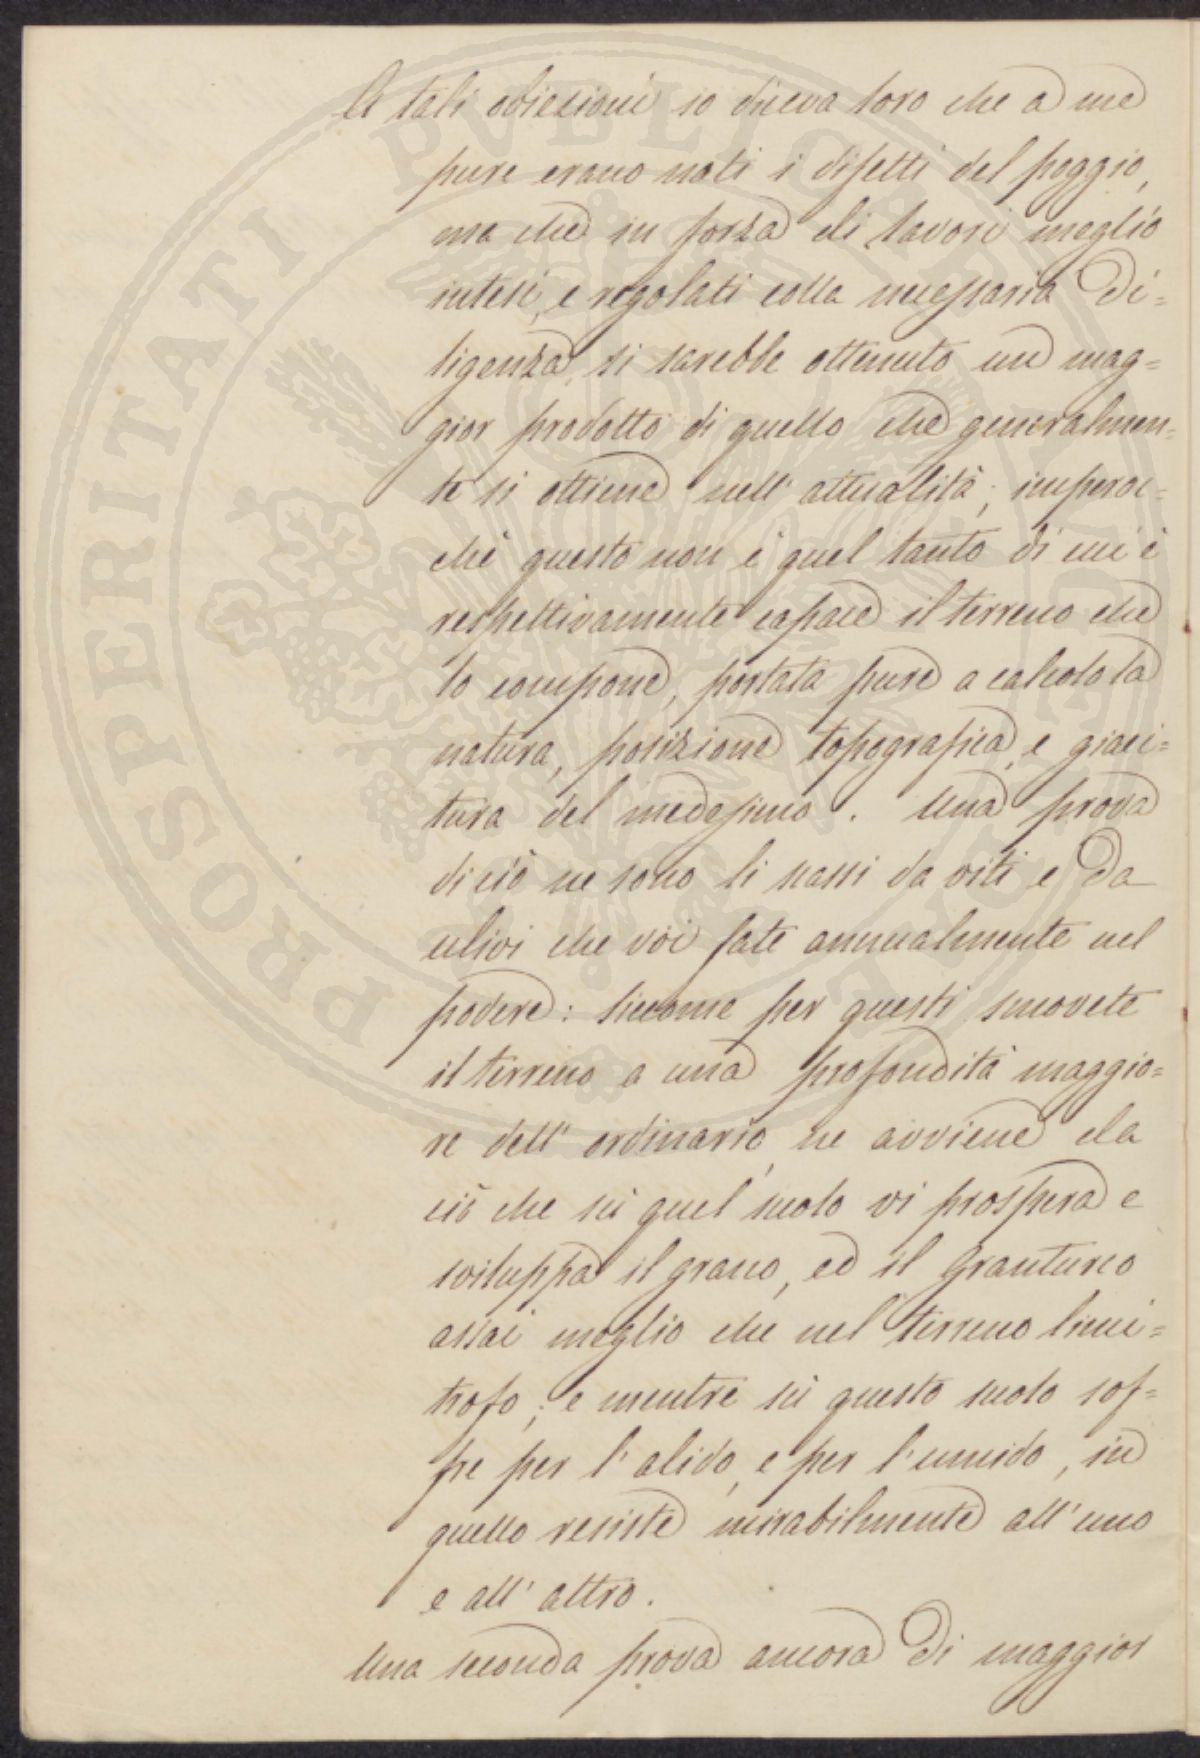 A tali obiezioni io diceva loro che a me
pure erano noti i difetti del poggio,
ma che in forza di lavori meglio
intesi, e regolati colla necessaria di=
ligenza, si sarebbe ottenuto un mag=
gior prodotto di quello che generalmen=
te si ottiene nell' attualità; imperoc=
chè questo non è quel tanto di cui è
respettivamente capace il terreno che
lo compone, portata pure a calcolo la
natura, posizione topografica, e giaci=
tura del medesimo. Una prova
di ciò ne sono li scassi da viti e da
ulivi che voi fate annualmente nel
podere: siccome per questi smovete
il terreno a una profondità maggio=
re dell' ordinario, ne avviene da
ciò che sù quel suolo vi prospera e
sviluppa il grano, ed il granturco
assai meglio che nel terreno limi=
trofo; e mentre sù questo suolo sof=
fre per l'alido, e per l'umido, in
quello resiste mirabilmente all'uno
e all' altro.
Una seconda prova ancora di maggior
PROSPERITATI PVBLICAE AVGENDAE